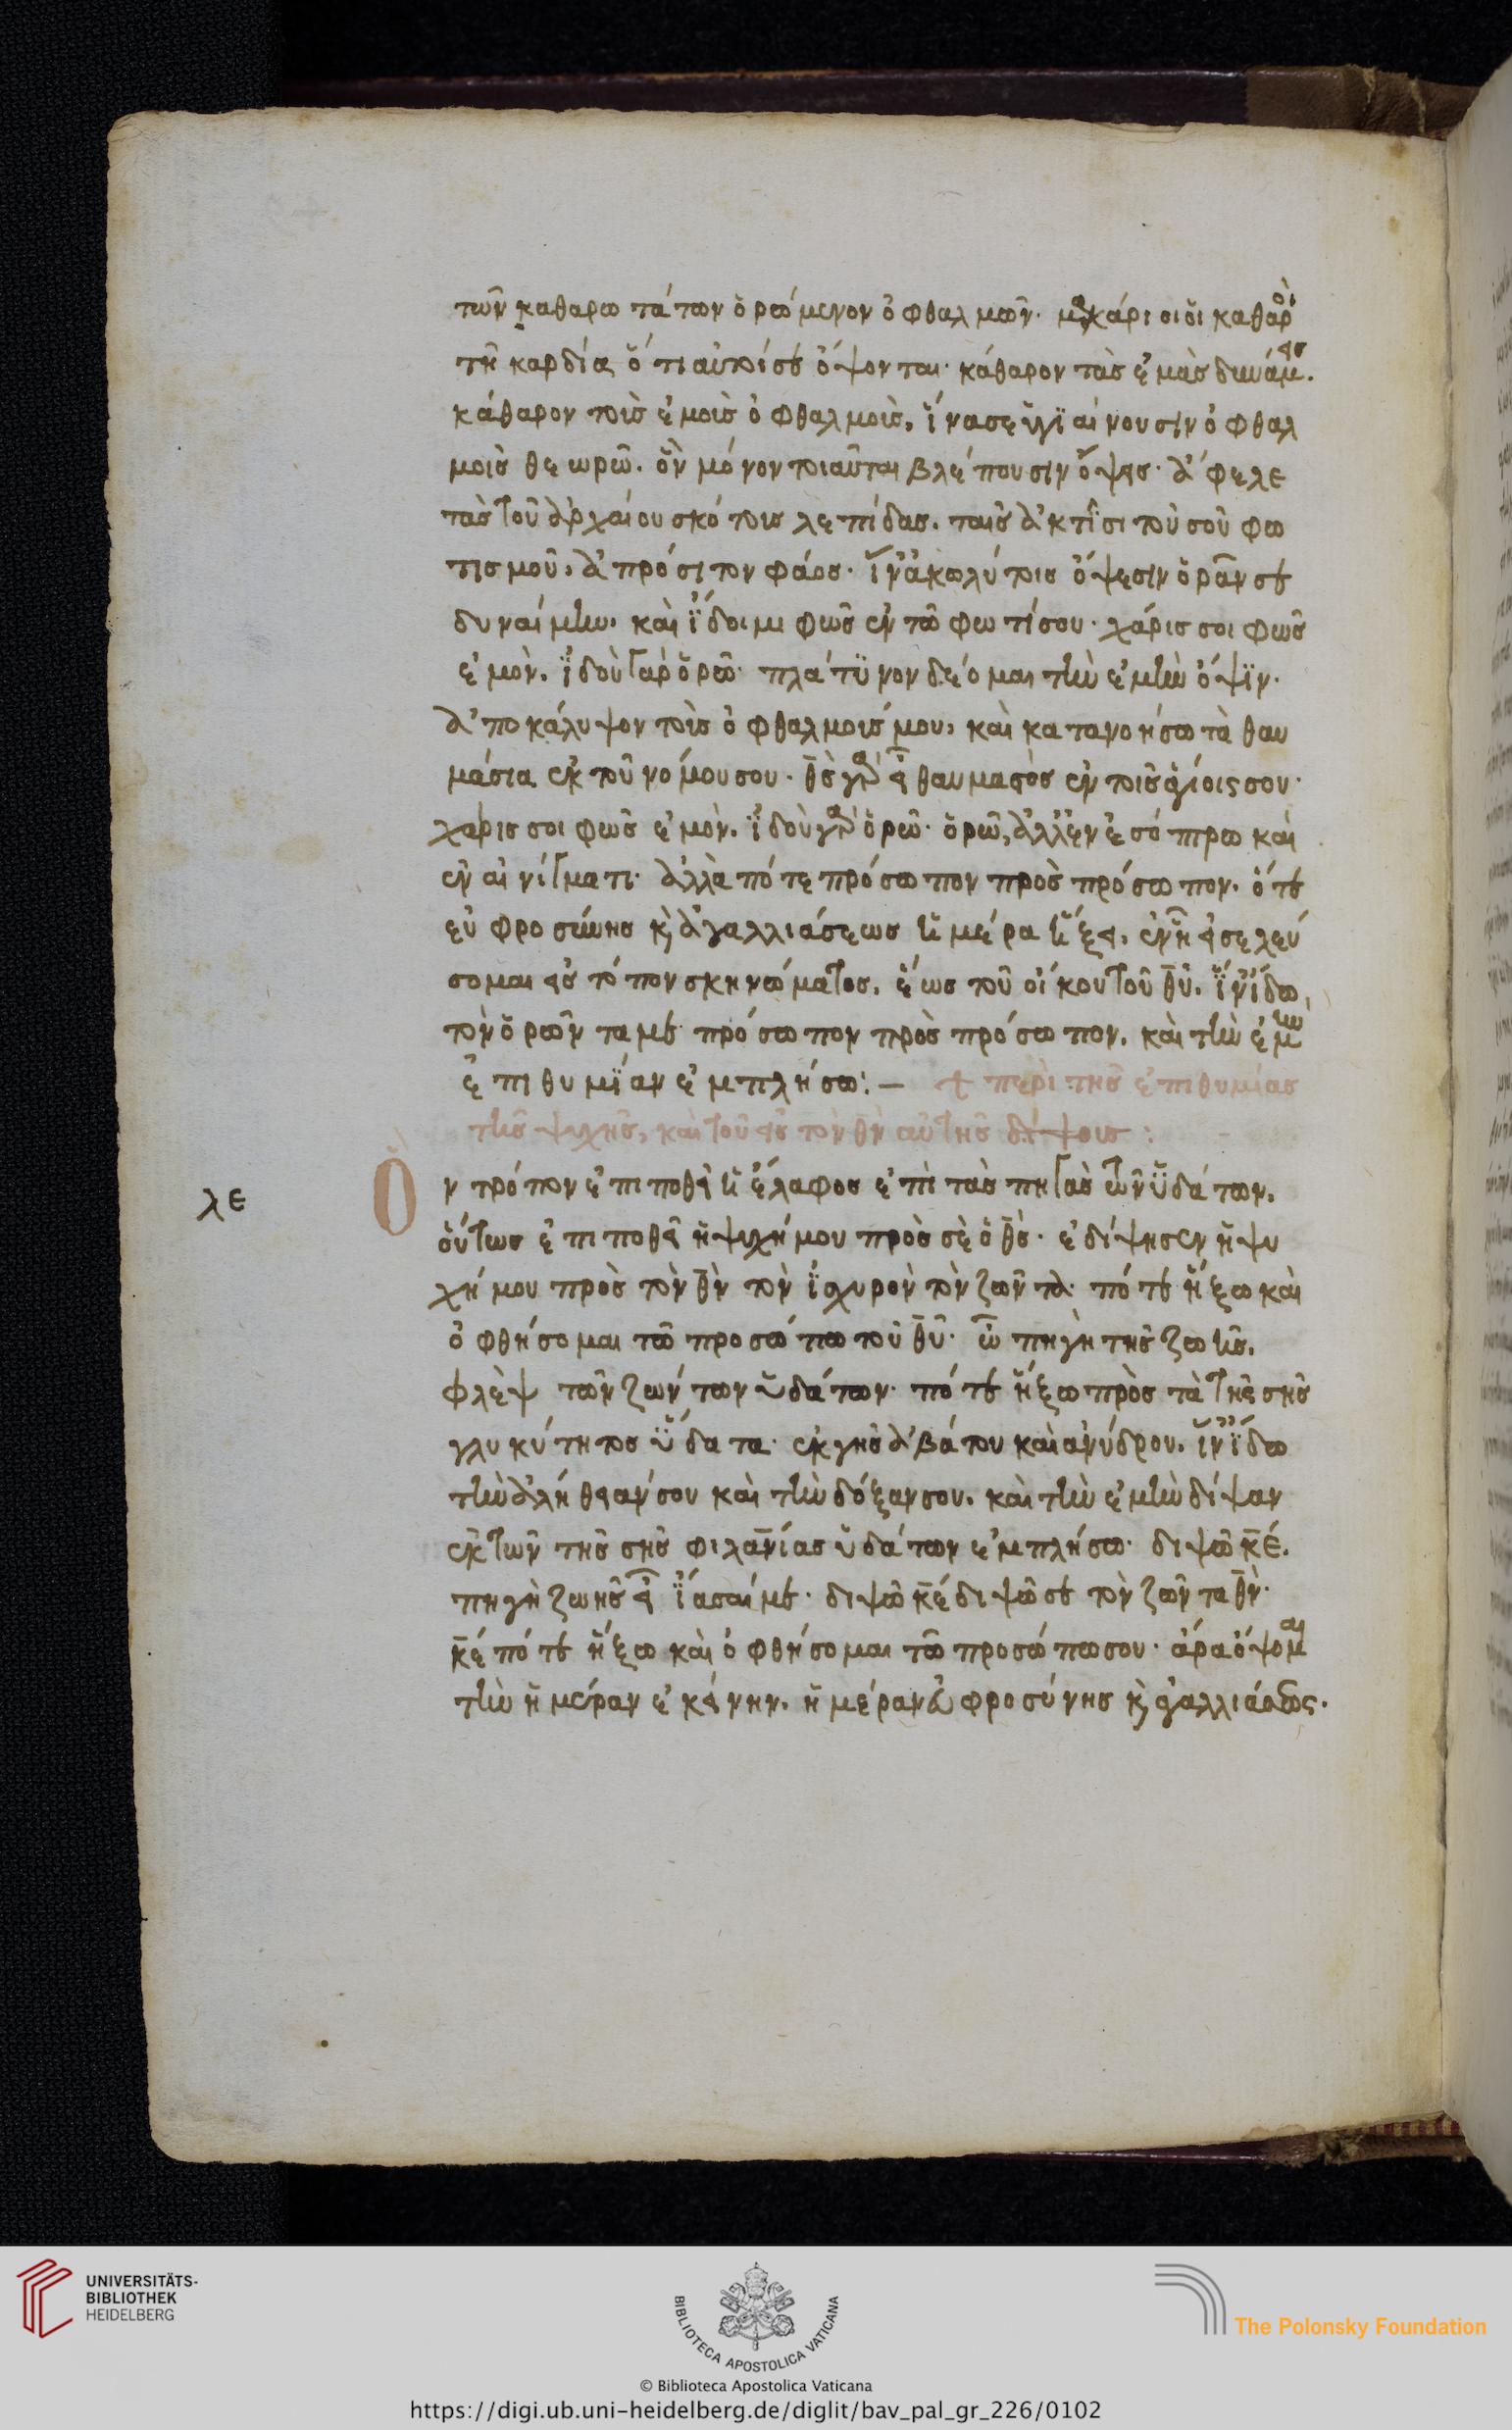 τῶν καθαρωτάτων ὁρώμενον ὀφθαλμῶν· μακάριοι οἱ καθαροὶ
τῆ καρδία ὅτι αὐτοί σε ὄψονται· κάθαρον τὰς ἐμὰς δυνάμεις.
κάθαρον τοὺς ἐμοὺς ὀφθαλμοὺς, ἵνα σε ὑγϊαίνουσιν ὀφθαλ
μοῖς θεωρῶ. ὃν μόνον τοιαῦται βλέπουσιν ὄψεις· ἄφελε
τὰς τοῦ ἀρχαίου σκότους λεπίδας. ταῖς ἀκτῖσι τοῦ σοῦ φω
τισμοῦ, ἀπρόσιτον φάος· ἵν' ἀκωλύτοις ὄψεσιν ὁρᾶν σε
δυναίμην, καὶ ἴδοιμι φῶς ἐν τῶ φωτί σου· χάρις σοι φῶς
ἐμὸν. ἰδοὺ γὰρ ὁρῶ· πλάτυνον δέομαι τὴν ἐμὴν ὄψϊν·
ἀποκάλυψον τοὺς ὀφθαλμούς μου, καὶ κατανοήσω τὰ θαυ
μάσια ἐκ τοῦ νόμου σου· θ̅ς̅ γὰρ εἶ θαυμαστὸς ἐν τοῖς ἁγίοις σου·
χάρις σοι φῶς ἐμὸν. ἰδοὺ γὰρ ὁρῶ· ὁρῶ, ἀλλ' ἐν ἐσόπτρω καὶ
ἐν αἰνίγματι· ἀλλὰ πότε πρόσωπον πρὸς πρόσωπον. ὅτε
εὐφροσύνης κ̀ ἀγαλλιάσεως ἡμέρα ἥξει, ἐν ἧ εἰσελεύ
σομαι εἰς τόπον σκηνώματος, ἕως τοῦ οἴκου τοῦ θ̅υ̅. ἵν' ἴδω
τὸν ὁρῶντά με πρόσωπον πρὸς πρόσωπον. καὶ τὴν ἐμὴν
ἐπιθυμΐαν ἐμπλήσω:— + περὶ τῆς ἐπιθυμίας
τῆς ψυχῆς, καὶ τοῦ εἰς τὸν θ̅ν̅ αὐτῆς δίψους :
λε
Ὃν τρόπον ἐπιποθεῖ ἡ ἔλαφος ἐπὶ τὰς πηγὰς τῶν ὑδάτων.
οὕτως ἐπιποθεῖ ἡ ψυχή μου πρὸς σὲ ὁ θ̅ς̅· ἐδίψησεν ἡ ψυ
χή μου πρὸς τὸν θ̅ν̅ τὸν ἰσχυρὸν τὸν ζῶντα· πότε ἥξω καὶ
ὀφθήσομαι τῶ προσώπω τοῦ θ̅υ̅· ὦ πηγὴ τῆς ζωῆς.
φλὲψ τῶν ζώντων ὑδάτων· πότε ἥξω πρὸς τὰ τῆς σῆς
γλυκύτητος ὕδατα· ἐκ γῆς ἀβάτου καὶ ἀνύδρου. ἵν' ἴδω
τὴν ἀλήθειάν σου καὶ τὴν δόξαν σου. καὶ τὴν ἐμὴν δίψαν
ἐκ τῶν τῆς σῆς φιλα̅ν̅ίας ὑδάτων ἐμπλήσω· διψῶ κ̅ε̅.
πηγὴ ζωῆς εἶ ἴασαί με· διψῶ κ̅ε̅ διψῶ σε τὸν ζῶντα θ̅ν̅·
κ̅ε̅ πότε ἥξω καὶ ὀφθήσομαι τῶ προσώπω σου· ἆρα ὄψομαι
τὴν ἡμέραν ἐκείνην. ἡμέραν εὐφροσύνης κ̀ ἀγαλλιάσεως.
UNIVERSITÄTS-
BIBLIOTHEK
HEIDELBERG
BIBLIOTECA APOSTOLICA VATICANA
The Polonsky Foundation
© Biblioteca Apostolica Vaticana
https://digi.ub.uni-heidelberg.de/diglit/bav_pal_gr_226/0102